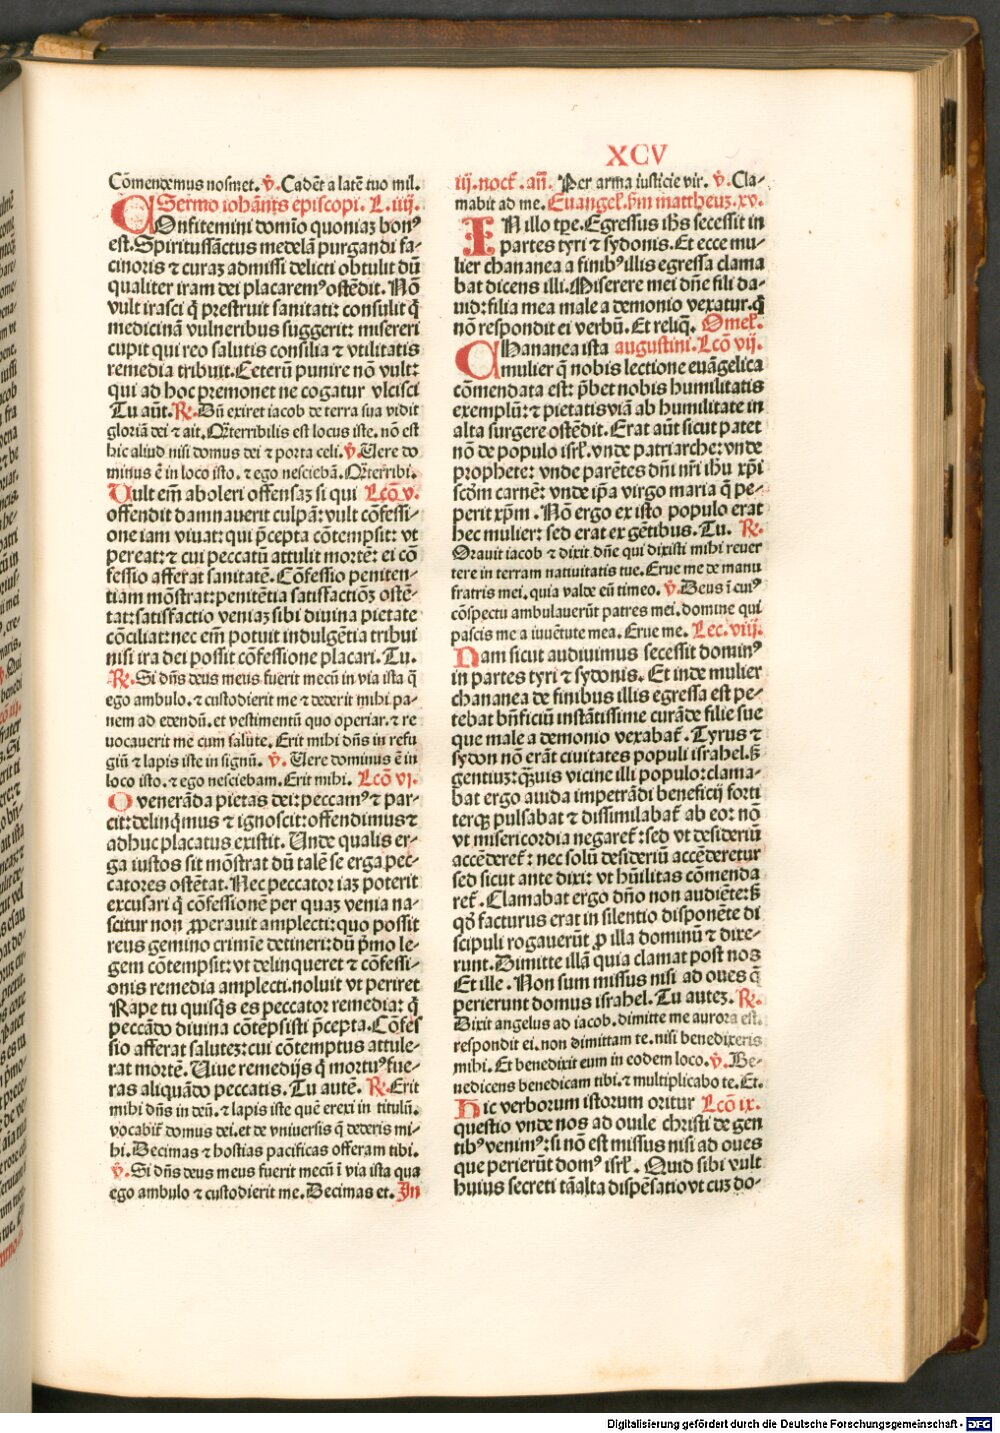 XCV
Cōmendemus nosmet. ꝟ. Cadēt a latē tuo mil.
Sermo iohānis episcopi. L. iiij.
COnfitemini domīo quoniaꝫ bonꝰ
est. Spiritussāctus medelā purgandi fa-
cinoris ⁊ curaꝫ admissi delicti obtulit dū
qualiter iram dei placaremꝰ ostēdit. Nō
vult irasci q̄ prestruit sanitati: consulit q̄
medicinā vulneribus suggerit: misereri
cupit qui reo salutis consilia ⁊ vtilitatis
remedia tribuit. Ceterū punire nō vult:
qui ad hoc premonet ne cogatur vlcisci
Tu aūt. ℟. Dū exiret iacob de terra sua vidit
gloriā dei ⁊ ait. Q̄terribilis est locus iste. nō est
hic aliud nisi domus dei ⁊ porta celi. ꝟ. Uere do
minus ē in loco isto. ⁊ ego nesciebā. Q̄terribi.
Uult em̄ aboleri offensaꝫ si qui Lcō v.
offendit damnauerit culpā: vult cōfessi-
one iam viuat: qui p̄cepta cōtempsit: vt
pereat: ⁊ cui peccatū attulit mortē: ei cō
fessio afferat sanitatē. Cōfessio peniten-
tiam mōstrat: penitētia satisfactiōꝫ ostē-
tat: satisfactio veniaꝫ sibi diuina pietate
cōciliat: nec em̄ potuit indulgētia tribui
nisi ira dei possit cōfessione placari. Tu.
℟. Si dn̄s deus meus fuerit mecū in via ista q̄
ego ambulo. ⁊ custodierit me ⁊ dederit mihi pa-
nem ad edendū. et vestimentū quo operiar. ⁊ re
uocauerit me cum salute. Erit mihi dn̄s in refu
giū ⁊ lapis iste in signū. ꝟ. Uere dominus ē in
loco isto. ⁊ ego nesciebam. Erit mihi. Lcō vj.
O venerāda pietas dei: peccamꝰ ⁊ par-
cit: delinq̄mus ⁊ ignoscit: offendimus ⁊
adhuc placatus existit. Unde qualis er-
ga iustos sit mōstrat dū talē se erga pec-
catores ostētat. Nec peccator iaꝫ poterit
excusari q̄ cōfessionē per quaꝫ venia na-
scitur non ꝓperauit amplecti: quo possit
reus gemino crimīe detineri: dū p̄mo le-
gem cōtempsit: vt delinqueret ⁊ cōfessi-
onis remedia amplecti. noluit vt periret
Rape tu quisq̄s es peccator remedia: q̄
peccādo diuina cōtēpsisti p̄cepta. Cōfes
sio afferat saluteꝫ: cui cōtemptus attule-
rat mortē. Uiue remedijs q̄ mortuꝰ fue-
ras aliquādo peccatis. Tu autē. ℟. Erit
mihi dn̄s in deū. ⁊ lapis iste quē erexi in titulū.
vocabit̄ domus dei. et de vniuersis q̄ dederis mi-
hi. Decimas ⁊ hostias pacificas offeram tibi.
ꝟ. Si dn̄s deus meus fuerit mecū ī via ista qua
ego ambulo ⁊ custodierit me. Decimas et. In
iij. noct̄. an̄. Per arma iusticie vir. ꝟ. Cla-
mabit ad me. Euangel̄. ẜm mattheuꝫ. xv.
IN illo tꝑe. Egressus ihs̄ secessit in
partes tyri ⁊ sydonis. Et ecce mu-
lier chananea a finibꝰ illis egressa clama
bat dicens illi. Miserere mei dn̄e fili da-
uid: filia mea male a demonio vexatur. q̄
nō respondit ei verbū. Et reliq̄. Omel̄.
CHananea ista augustini. Lcō vij.
mulier q̄ nobis lectione euāgelica
cōmendata est: p̄bet nobis humilitatis
exemplū: ⁊ pietatis viā ab humilitate in
alta surgere ostēdit. Erat aūt sicut patet
nō de populo isrl̄. vnde patriarche: vnde
prophete: vnde parētes dn̄i nr̄i ihu xp̄i
scd̄m carnē: vnde ip̄a virgo maria q̄ pe-
perit xp̄m. Nō ergo ex isto populo erat
hec mulier: sed erat ex gētibus. Tu. ℟.
Orauit iacob ⁊ dixit. dn̄e qui dixisti mihi reuer
tere in terram natiuitatis tue. Erue me de manu
fratris mei. quia valde eū timeo. ꝟ. Deus ī cuiꝰ
cōspectu ambulauerūt patres mei. domine qui
pascis me a iuuētute mea. Erue me. Lec. viij.
Nam sicut audiuimus secessit dominꝰ
in partes tyri ⁊ sydonis. Et inde mulier
chananea de finibus illis egressa est pe-
tebat bn̄ficiū instātissime curāde filie sue
que male a demonio vexabat̄. Tyrus ⁊
sydon nō erāt ciuitates populi israhel. ẜ
gentiuꝫ: q̄uis vicine illi populo: clama-
bat ergo auida impetrādi beneficij forti
terqꝫ pulsabat ⁊ dissimilabat̄ ab eo: nō
vt misericordia negaret̄: sed vt desideriū
accēderet̄: nec solū desideriū accēderetur
sed sicut ante dixi: vt hūilitas cōmenda
ret̄. Clamabat ergo dn̄o non audiēte: ẜ
qd̄ facturus erat in silentio disponēte di
scipuli rogauerūt ꝓ illa dominū ⁊ dixe-
runt. Dimitte illā quia clamat post nos
Et ille. Non sum missus nisi ad oues q̄
perierunt domus israhel. Tu auteꝫ. ℟.
Dixit angelus ad iacob. dimitte me aurora est.
respondit ei. non dimittam te. nisi benedixeris
mihi. Et benedixit eum in eodem loco. ꝟ. Be-
nedicens benedicam tibi. ⁊ multiplicabo te. Et.
Hic verborum istorum oritur Lcō ix.
questio vnde nos ad ouile christi de gen
tibꝰ venimꝰ: si nō est missus nisi ad oues
que perierūt domꝰ isrl̄. Quid sibi vult
huius secreti tā alta dispēsatio vt cuꝫ do-
Digitalisierung gefördert durch die Deutsche Forschungsgemeinschaft - DFG